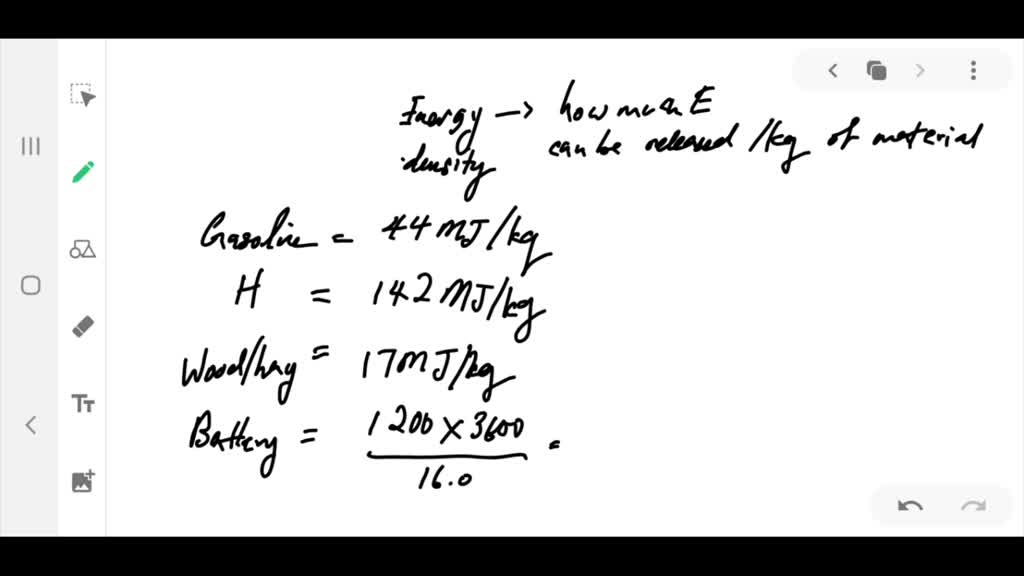 Energy → how much E
density can be released /kg of material
Gasoline = 44 MJ/kg
H = 142 MJ/kg
Wood/hay = 17 MJ/kg
Battery = 1200 × 3600 =
16.0
TT